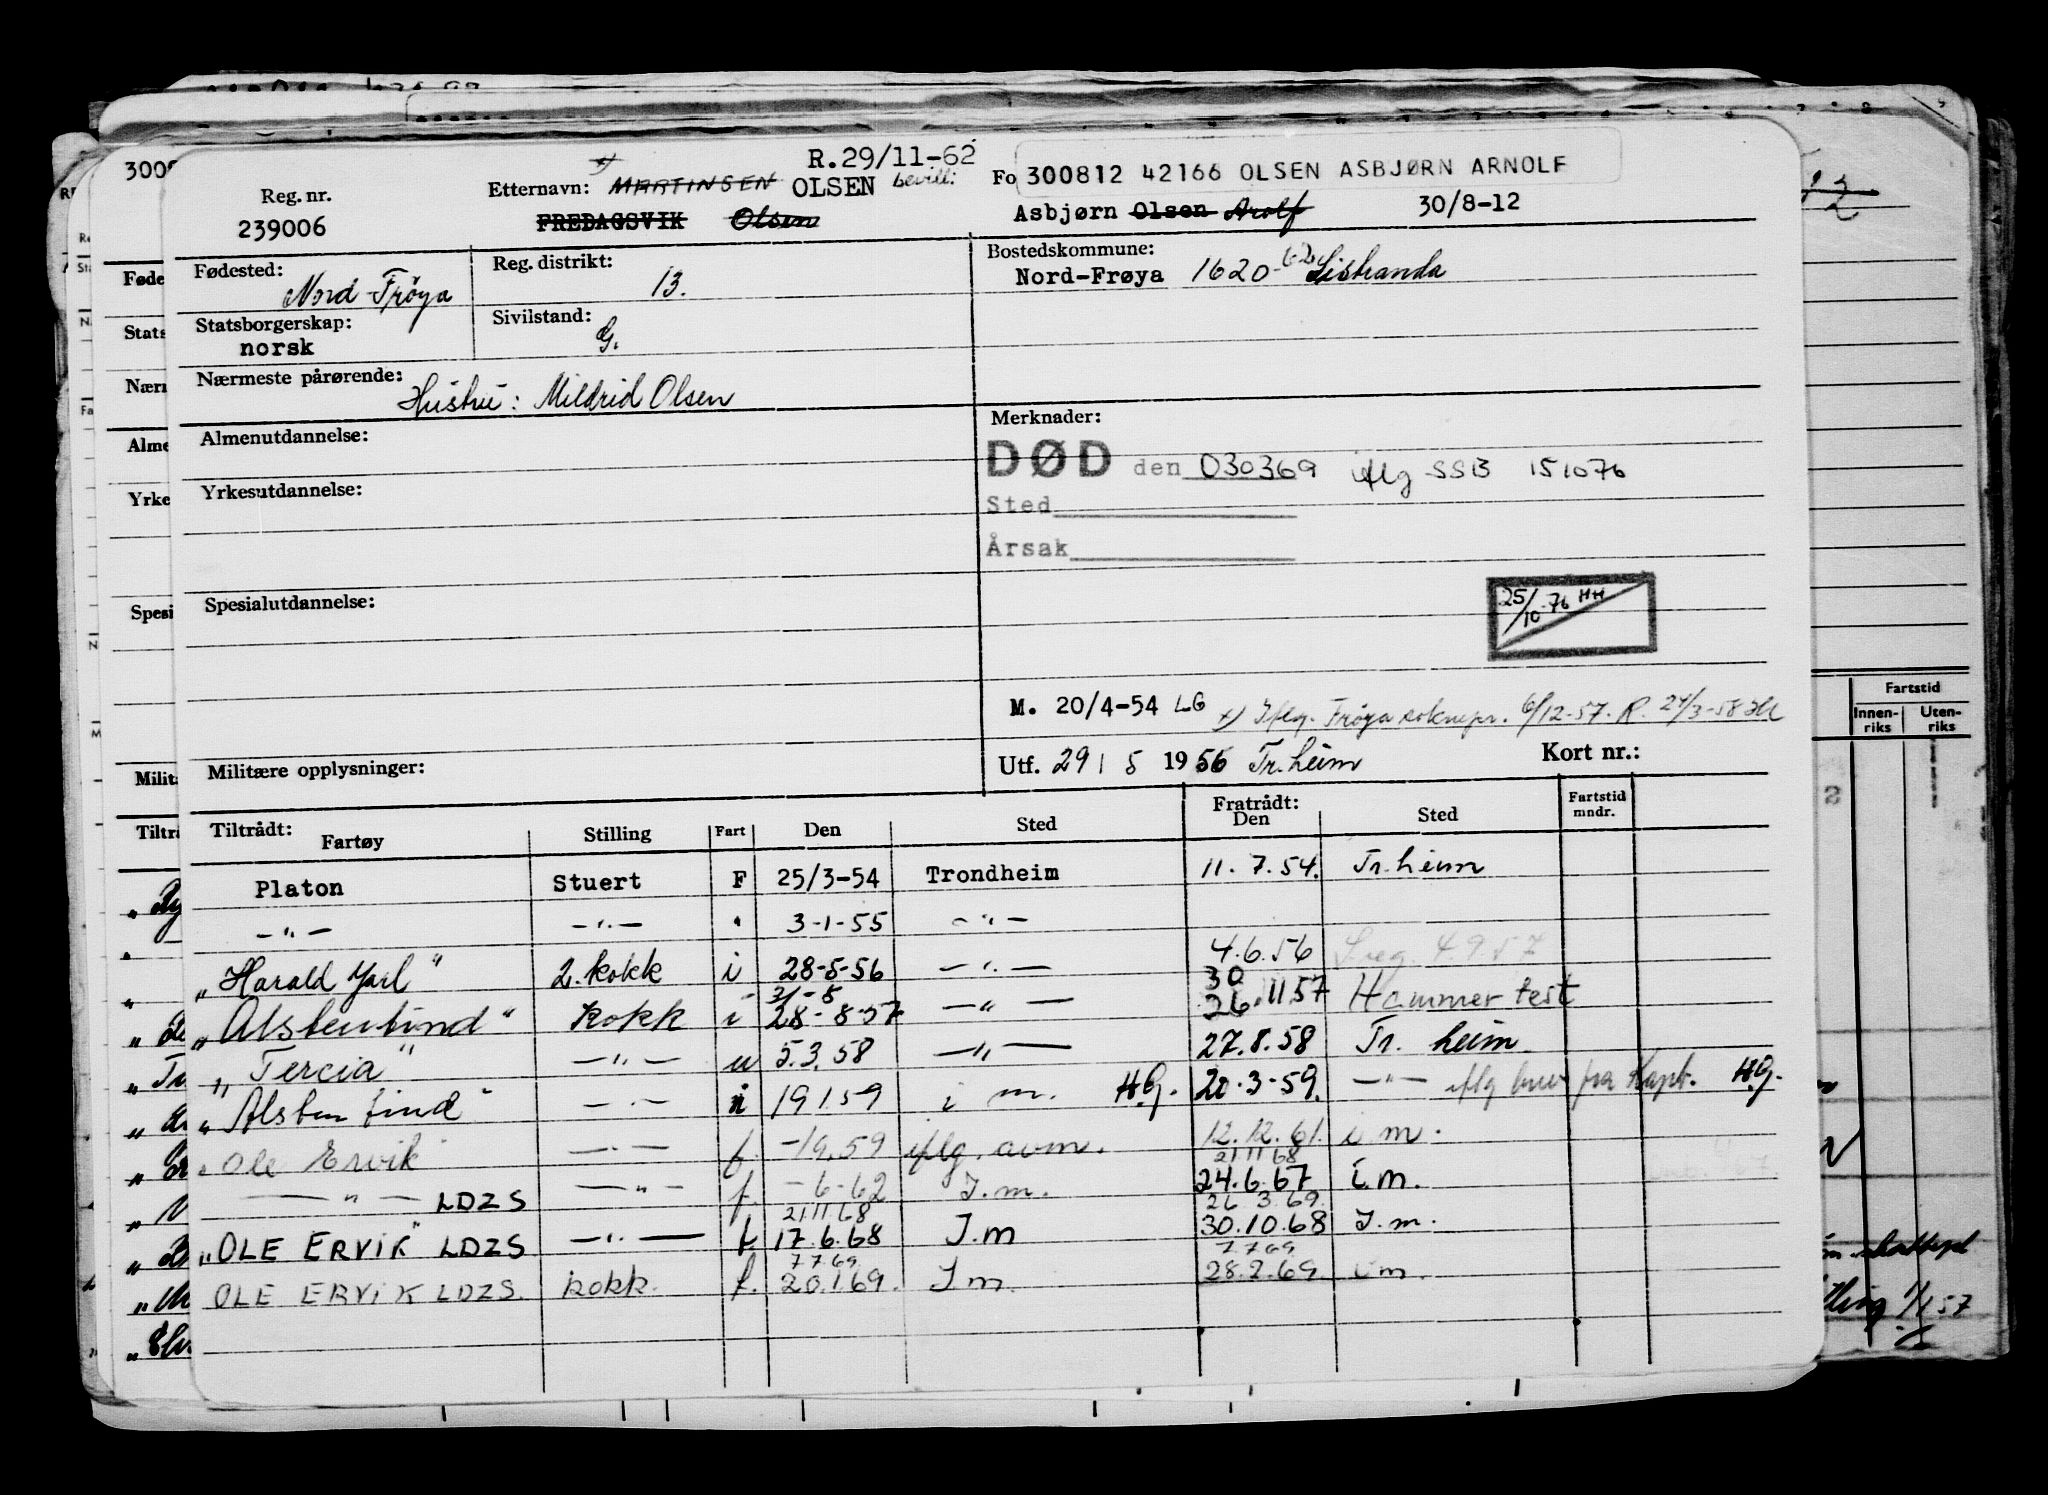 Reg. nr.
239006
R.29/11-62
x) Etternavn: MARTINSEN OLSEN bevill:
FREDAGSVIK Olsen
Fo 300812 42166 OLSEN ASBJØRN ARNOLF
Asbjørn Olsen Arolf 30/8-12
Fødested:
Nord-Frøya
Reg. distrikt:
13.
Bostedskommune:
Nord-Frøya 1620-62 Sistranda
Statsborgerskap:
norsk
Sivilstand:
G.
Nærmeste pårørende:
Hustru: Mildrid Olsen
Almenutdannelse:
Merknader:
DØD den 030369 iflg SSB 151076
Sted
Årsak
Yrkesutdannelse:
Spesialutdannelse:
25/10-76 HH
M. 20/4-54 LG x) Iflg. Frøya soknepr. 6/12-57. R. 24/3-58
Militære opplysninger:
Utf. 29/5 1956 Tr.heim
Kort nr.:
Tiltrådt: Fratrådt:
Fartøy Stilling Fart Den Sted Den Sted Fartstid mndr.
Platon Stuert F 25/3-54 Trondheim 11.7.54. Tr.heim
—"— —"— " 3-1-55 —"—
"Harald Jarl" 2. kokk i 28-5-56 —"— 4.6.56 Sreg. 4.9.57
31-5 30
"Alstentind" kokk i 28-8-57 —"— 26.11.57 Hammerfest
"Tercia" —"— u 5.3.58 —"— 27.8.58 Tr. heim
"Alstentind" —"— i 19 1 59 i m. H.G. 20.3-59. —"— iflg brev fra Kapt. H.G.
"Ole Ervik" —"— f. -19.59 iflg. avm. 12.12.61. i m.
21 11 68
—"— LDZS —"— f. -6-62 I.m. 24.6.67 i.m.
21 11 68 26 3.69.
"OLE ERVIK" LDZS —"— f. 17.6.68 I.m 30.10.68 I.m.
7 7 69 7.7 69
OLE ERVIK LDZS. kokk. f. 20.1.69. I m. 28.2.69. i m.
Fartstid
Innenriks Utenriks